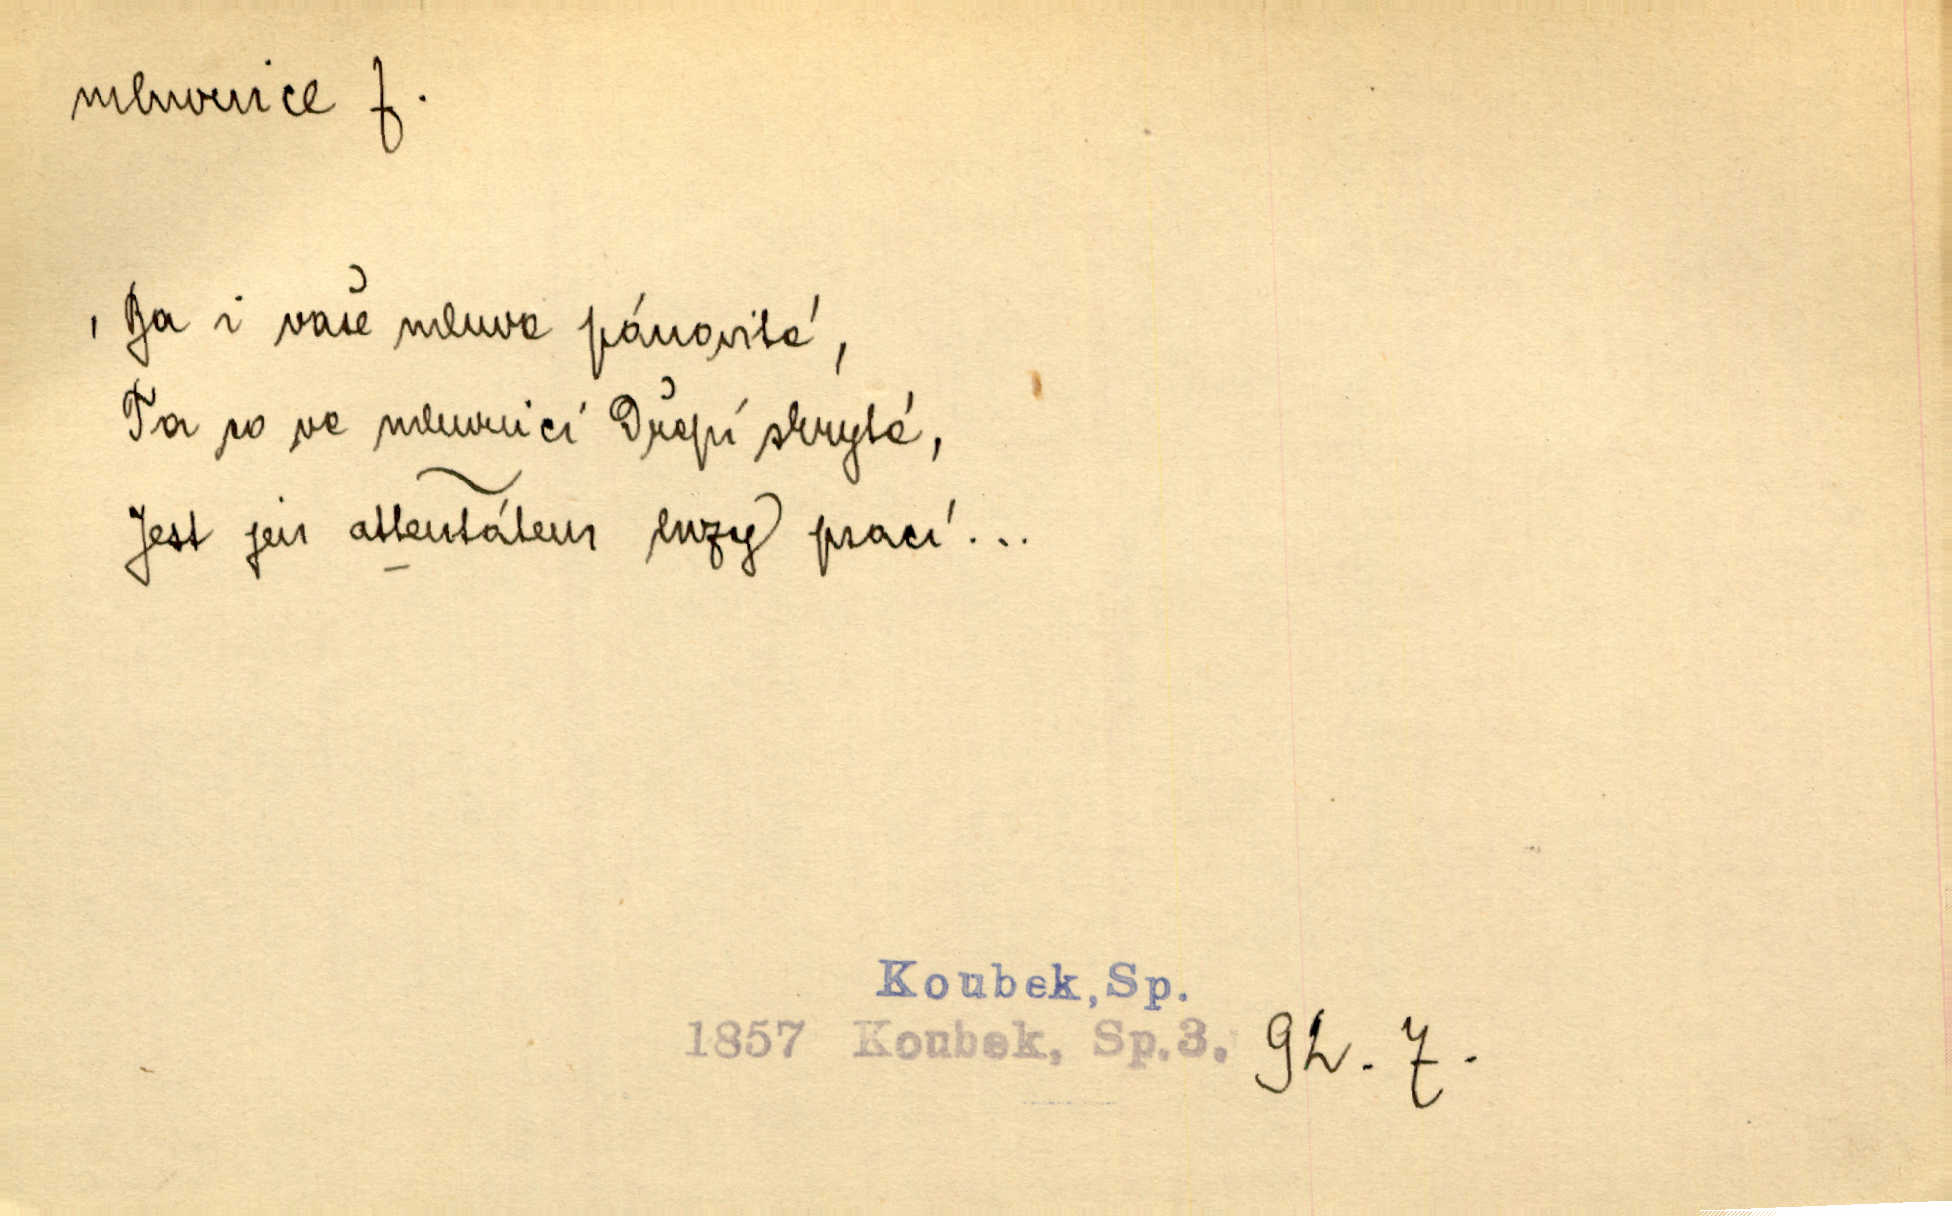 mluvnice f.
Ba i vaše mluva pánovitá,
Ta se ve mluvnici Dřepí skrytá,
Jest jen attentátem luzy prací...
Koubek,Sp.
1857 Koubek, Sp.3. 92. 7.